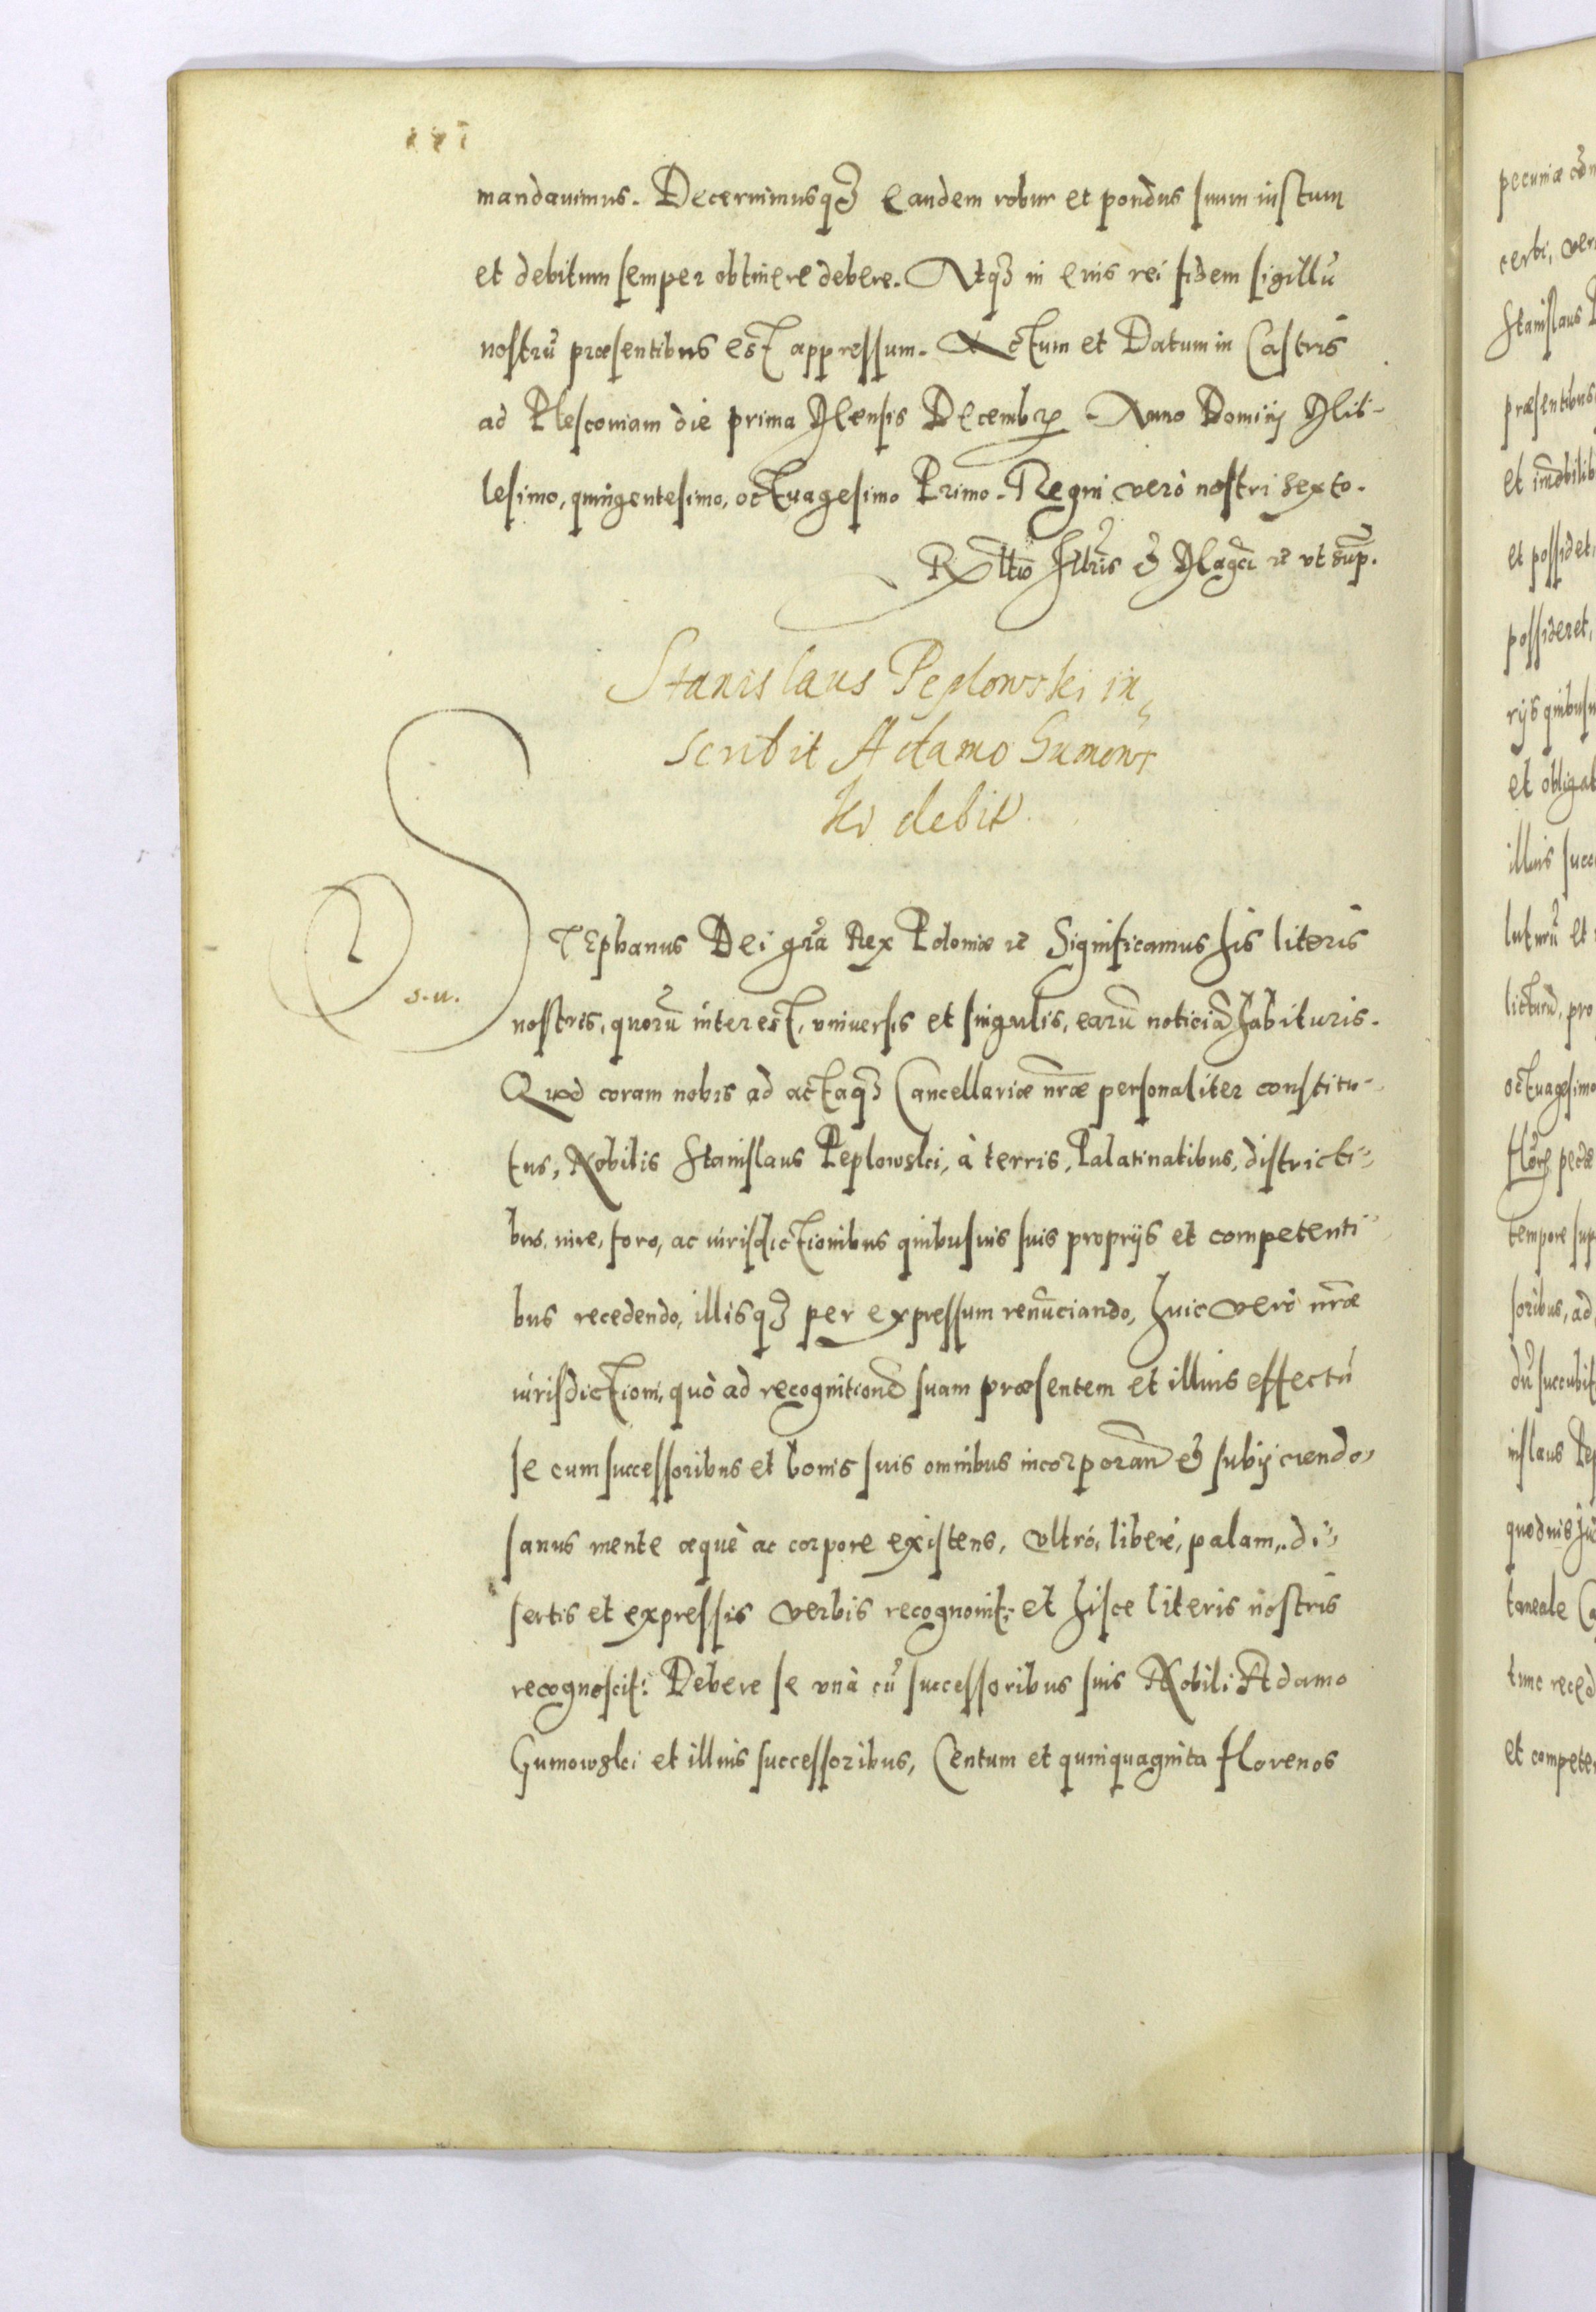 mandauimus. Decernimusqȝ eandem robur et pondus suum iustum
et debitum semper obtinere debere. Atqȝ in eius rei fidem sigillũ
nostrũ præsentibus est appressum. Actum et Datum in Castris
ad Plescouiam die prima Mensis Decembrꝭ Anno Dominj Mil-
lesimo, quingentesimo, octuagesimo Primo. Regni verò nostri sexto.
Rltio Illris et Magci ꝛc vt supͣ.
Stanislaus Peplowski in,
scribit Adamo Gumows
ki debit
STEphanus Dei grã Rex Poloniæ ꝛc Significamus his literis
s. u.
nostris, quorũ interest, vniuersis et singulis, earũ noticiã habituris.
Quod coram nobis ad actaqȝ Cancellariæ nræ personaliter constitu-
tus, Nobilis Stanislaus Peplowski, à terris, Palatinatibus, districti-
bus, iure, foro, ac iurisdictionibus quibusuis suis proprijs et competenti-
bus recedendo, illisqȝ per expressum renũciando, huic verò nræ
iurisdictioni, quò ad recognitionẽ suam præsentem et illius effectũ
se cum successoribus et bonis suis omnibus incorporan et subijciendo,
sanus mente æquè ac corpore existens, vltrò, liberè, palam, di-
sertis et expressis verbis recognouit, et hisce literis nostris
recognoscit: Debere se vnà cũ successoribus suis Nobili Adamo
Gumowski et illius successoribus, Centum et quinquaginta florenos
pecuniæ
Stanislaus
præsentibus
et possidet,
possideret,
et obligat
illius succ
octuagesimo
tempore sup
soribus, ad
islaus Pep
tunc reced
et compete